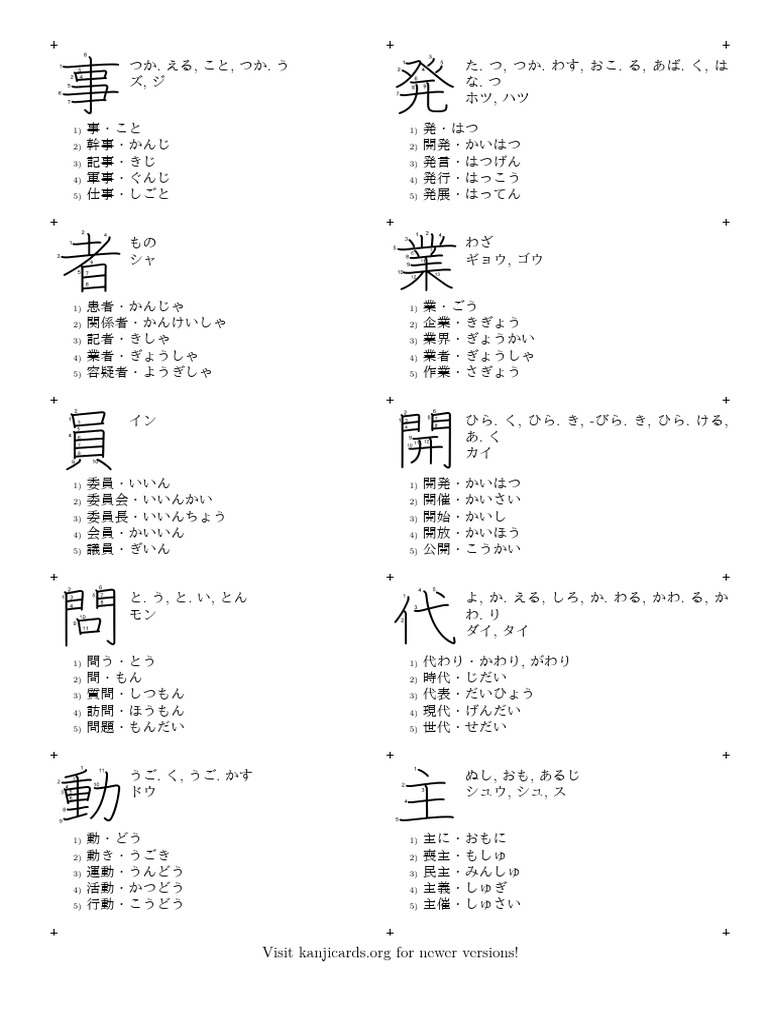 事 つか. える, こと, つか. う
ズ, ジ
1) 事・こと
2) 幹事・かんじ
3) 記事・きじ
4) 軍事・ぐんじ
5) 仕事・しごと
発 た. つ, つか. わす, おこ. る, あば. く, は
な. つ
ホツ, ハツ
1) 発・はつ
2) 開発・かいはつ
3) 発言・はつげん
4) 発行・はっこう
5) 発展・はってん
者 もの
シャ
1) 患者・かんじゃ
2) 関係者・かんけいしゃ
3) 記者・きしゃ
4) 業者・ぎょうしゃ
5) 容疑者・ようぎしゃ
業 わざ
ギョウ, ゴウ
1) 業・ごう
2) 企業・きぎょう
3) 業界・ぎょうかい
4) 業者・ぎょうしゃ
5) 作業・さぎょう
員 イン
1) 委員・いいん
2) 委員会・いいんかい
3) 委員長・いいんちょう
4) 会員・かいいん
5) 議員・ぎいん
開 ひら. く, ひら. き, -びら. き, ひら. ける,
あ. く
カイ
1) 開発・かいはつ
2) 開催・かいさい
3) 開始・かいし
4) 開放・かいほう
5) 公開・こうかい
問 と. う, と. い, とん
モン
1) 問う・とう
2) 問・もん
3) 質問・しつもん
4) 訪問・ほうもん
5) 問題・もんだい
代 よ, か. える, しろ, か. わる, かわ. る, か
わ. り
ダイ, タイ
1) 代わり・かわり, がわり
2) 時代・じだい
3) 代表・だいひょう
4) 現代・げんだい
5) 世代・せだい
動 うご. く, うご. かす
ドウ
1) 動・どう
2) 動き・うごき
3) 運動・うんどう
4) 活動・かつどう
5) 行動・こうどう
主 ぬし, おも, あるじ
シュウ, シュ, ス
1) 主に・おもに
2) 喪主・もしゅ
3) 民主・みんしゅ
4) 主義・しゅぎ
5) 主催・しゅさい
Visit kanjicards.org for newer versions!